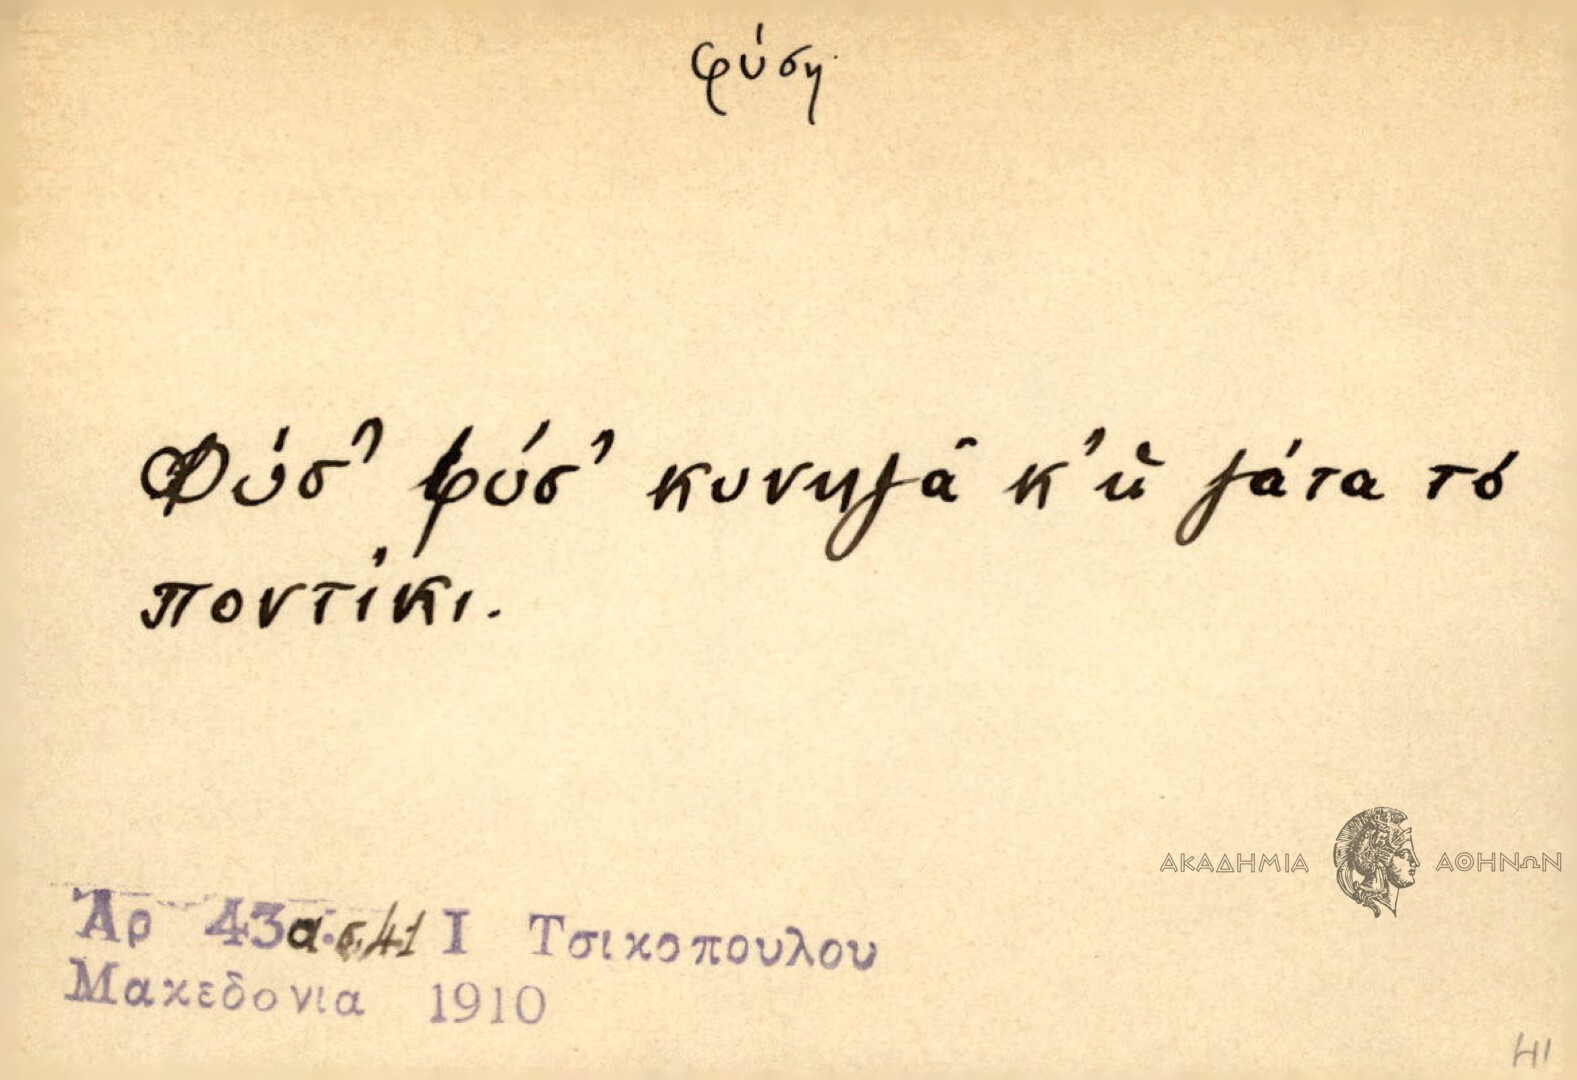 φύση
Φύσ' φύσ' κυνηγᾶ κ' ἡ γάτα τό
ποντίκι.
ΑΚΑΔΗΜΙΑ ΑΘΗΝΩΝ
Ἀρ 43α.σ.41 Ι Τσικοπουλου
Μακεδονια 1910